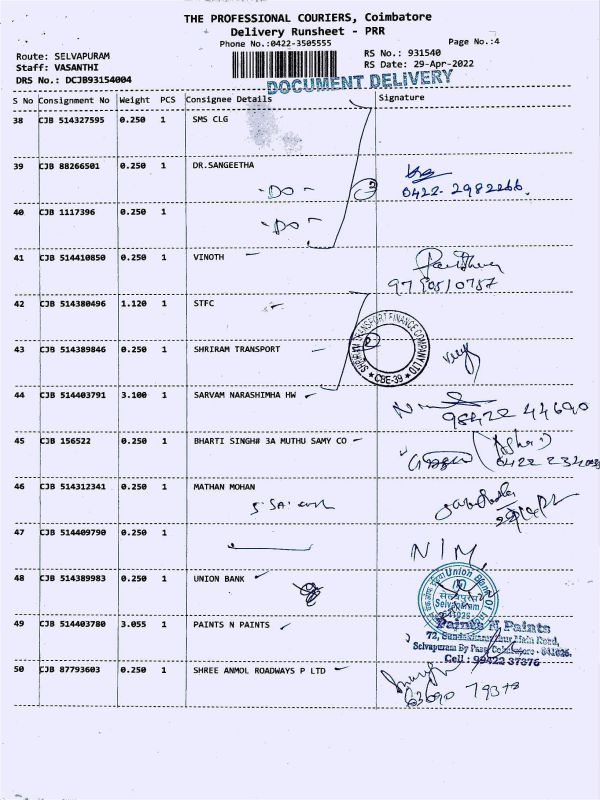 THE PROFESSIONAL COURIERS, Coimbatore
Delivery Runsheet - PRR
Phone No.:0422-3505555
Page No.:4
Route: SELVAPURAM
RS No.: 931540
Staff: VASANTHI
RS Date: 29-Apr-2022
DRS No.: DCJB93154004
DOCUMENT DELIVERY
S No Consignment No Weight PCS Consignee Details Signature
38 CJB 514327595 0.250 1 SMS CLG
39 CJB 88266501 0.250 1 DR.SANGEETHA
-DO- 0422-2982266
40 CJB 1117396 0.250 1
-DO-
41 CJB 514410850 0.250 1 VINOTH
42 CJB 514380496 1.120 1 STFC
SHRIRAM TRANSPORT FINANCE COMPANY LTD
CBE-39
43 CJB 514389846 0.250 1 SHRIRAM TRANSPORT
44 CJB 514403791 3.100 1 SARVAM NARASHIMHA HW
98422 44690
45 CJB 156522 0.250 1 BHARTI SINGH# 3A MUTHU SAMY CO
46 CJB 514312341 0.250 1 MATHAN MOHAN
47 CJB 514409790 0.250 1
N/M
48 CJB 514389983 0.250 1 UNION BANK
Union Bank Of
Selvapuram
49 CJB 514403780 3.055 1 PAINTS N PAINTS
Paints N Paints
Main Road,
Selvapuram By Pass Coimbatore - 641026.
Cell : 99422 37376
50 CJB 87793603 0.250 1 SHREE ANMOL ROADWAYS P LTD